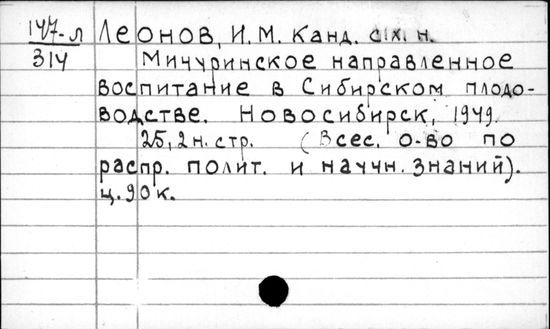 147-л Леонов, И.М. Канд. с/х. н.
314 Мичуринское направленное
воспитание в Сибирском плодо-
водстве. Новосибирск, 1949.
25, 2 н. стр. (Всес. о-во по
распр. полит. и научн. знаний).
ц. 90 к.